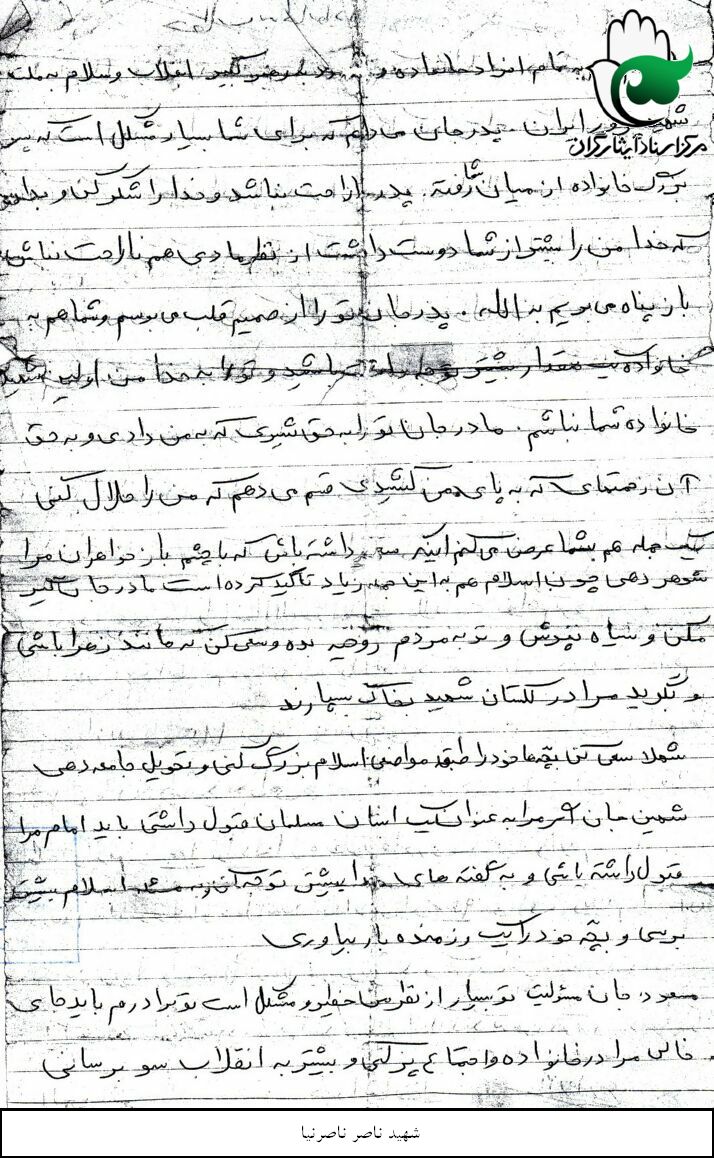 به تمام افراد خانواده و به رهبر کبیر انقلاب و سلام به ملت
شهید پرور ایران. پدر جان می دانم که برای شما بسیار مشکل است که پسر
بزرگ خانواده از میان شما رفته. پدر ناراحت نباشد و خدا را شکر کن و بدان
که خدا من را بیشتر از شما دوست داشت از نظر مادی هم ناراحت نباش
باز پناه می بریم به الله. پدر جان تو را از صمیم قلب می بوسم و شما هم به
خانواده یک مقدار بیشتر باشید و تو را به خدا من اولین شهید
خانواده شما نباشم. مادر جان تو را به حق شیری که به من دادی و به حق
آن زحمتهای که به پای من کشیدی قسم می دهم که من را حلال کنی
یک جمله هم بشما عرض می کنم اینکه سعی داشته باش که با چشم باز خواهران مرا
شوهر دهی چون اسلام هم به این جمله زیاد تأکید کرده است مادر جان گریه
مکن و سیاه نپوش و تو به مردم روحیه بده و سعی کن که مانند زهرا باشی
و بگوید مرا در گلستان شهید بخاک بسپارند
شهلا سعی کن بچه ها خود را طبق موازین اسلام بزرگ کنی و تحویل جامعه دهی
شمین جان اگر مرا به عنوان یک انسان مسلمان قبول داشتی باید امام مرا
قبول داشته باشی و به گفته های خدا بیشتر توجه کن به اسلام بیشتر
برسی و بچه خود را یک رزمنده بار بیاوری
مسعود جان مسئولیت تو بسیار از نظر من خطیر و مشکل است تو برادرم باید جای
خالی مرا در خانواده و اجتماع پر کنی و بیشتر به انقلاب سود برسانی
مرکز اسناد ایثارگران
شهید ناصر ناصرنیا